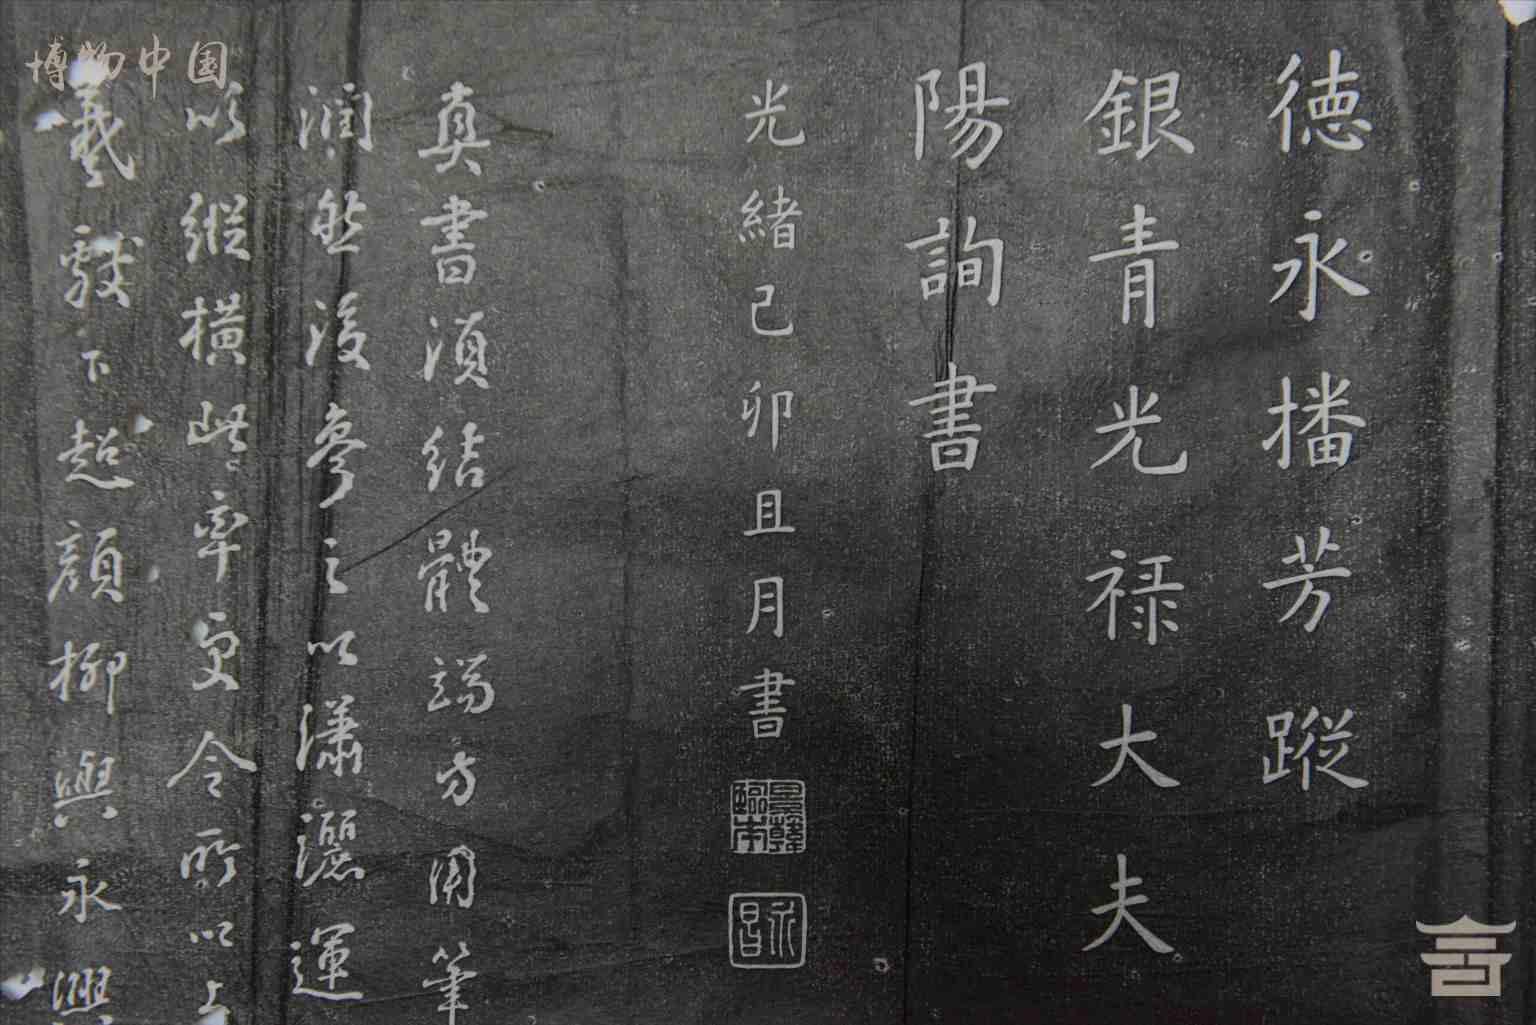 德永播芳蹤
銀青光禄大夫
陽詢書
光緒己卯且月書
真書須結體端方用筆
潤然後參之以瀟灑運
以縱橫此率更令所以上
羲獻下越顔柳與永興
博物中国